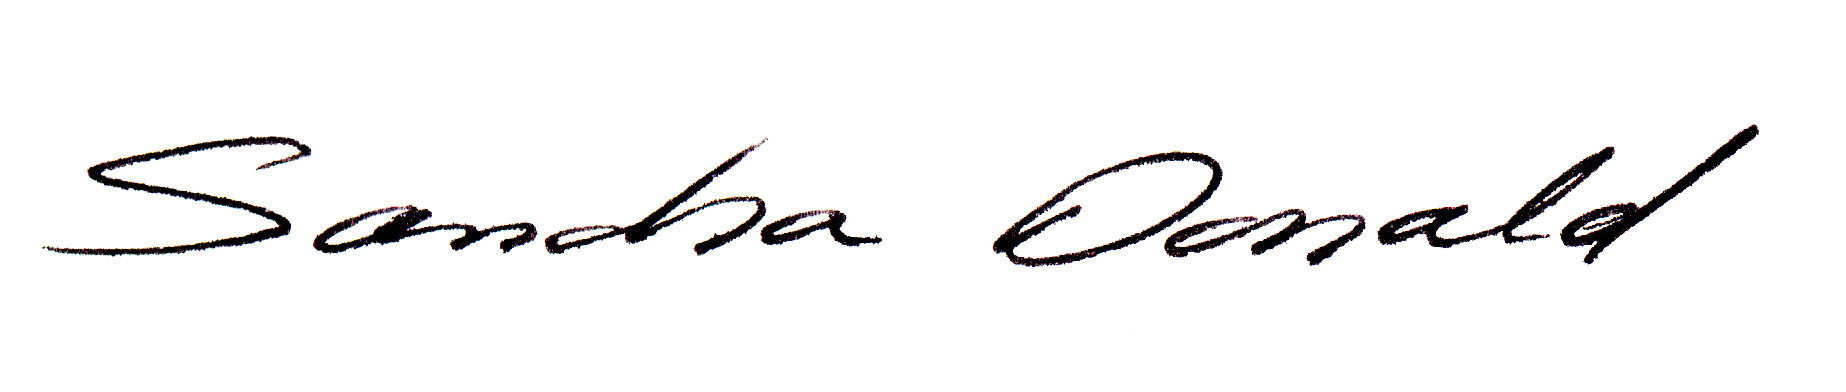 Sandra Donald